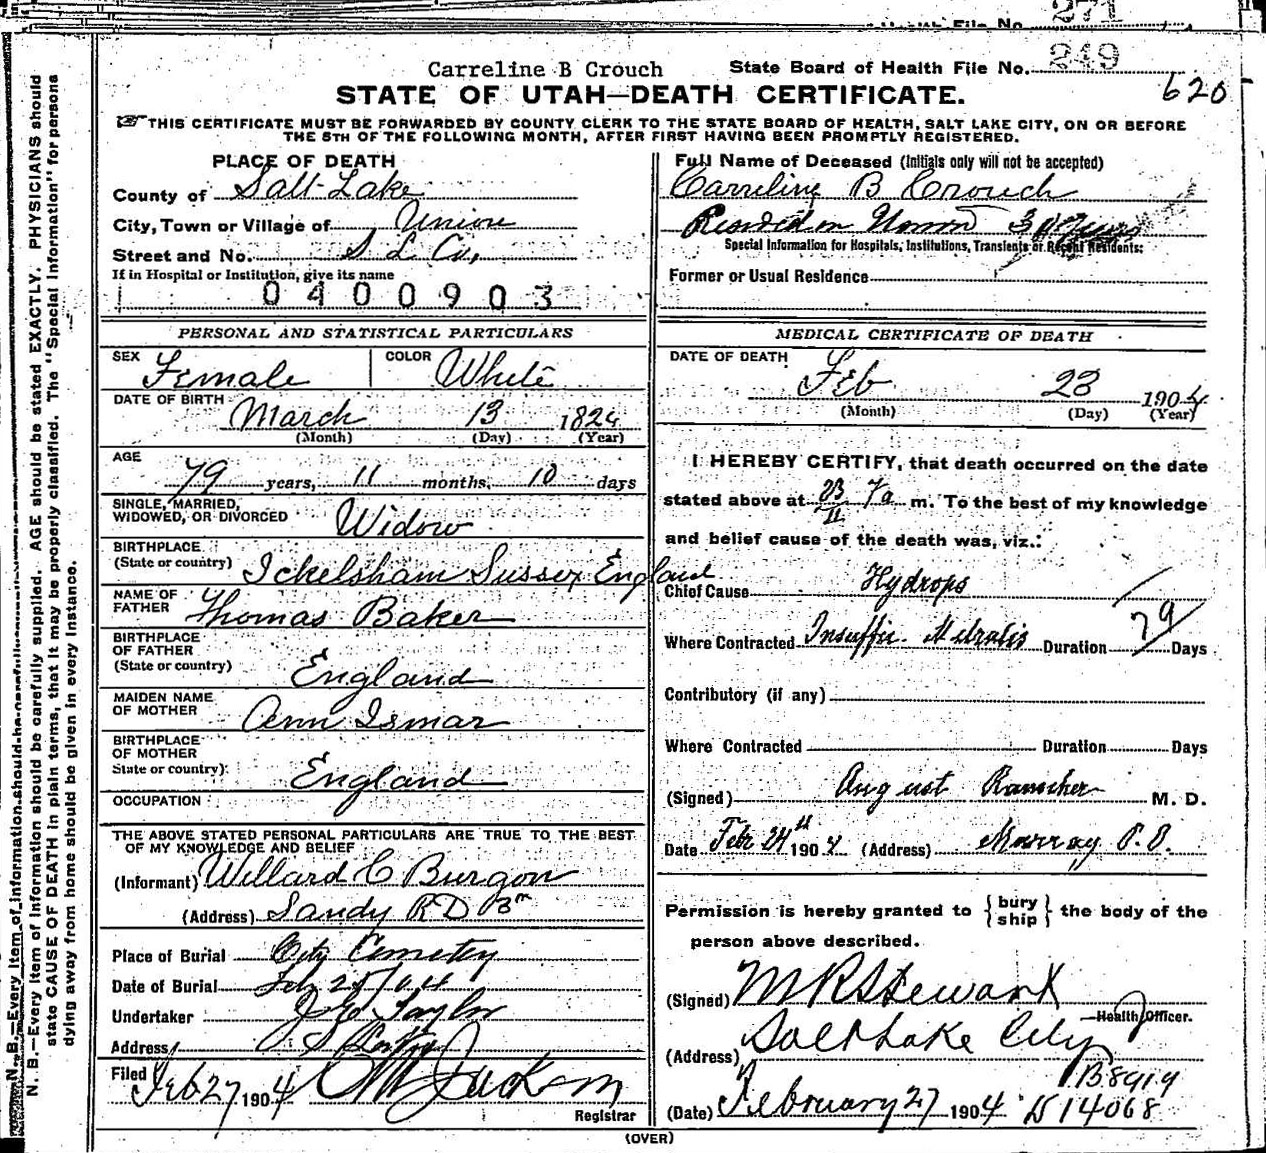 271
Health File No.
249
Carreline B Crouch State Board of Health File No.
620
STATE OF UTAH—DEATH CERTIFICATE.
THIS CERTIFICATE MUST BE FORWARDED BY COUNTY CLERK TO THE STATE BOARD OF HEALTH, SALT LAKE CITY, ON OR BEFORE
THE 5TH OF THE FOLLOWING MONTH, AFTER FIRST HAVING BEEN PROMPTLY REGISTERED.
N. B.—Every item of information should be carefully supplied. AGE should be stated EXACTLY. PHYSICIANS should
state CAUSE OF DEATH in plain terms, that it may be properly classified. The "Special Information" for persons
dying away from home should be given in every instance.
PLACE OF DEATH
County of Salt Lake
City, Town or Village of Union
Street and No. S L Co,
If in Hospital or Institution, give its name
0400903
Full Name of Deceased (Initials only will not be accepted)
Carreline B Crouch
Resided in Union 30 Years
Special Information for Hospitals, Institutions, Transients or Recent Residents:
Former or Usual Residence
PERSONAL AND STATISTICAL PARTICULARS
SEX Female COLOR White
DATE OF BIRTH March 13 1824
(Month) (Day) (Year)
AGE
79 years, 11 months, 10 days
SINGLE, MARRIED,
WIDOWED, OR DIVORCED Widow
BIRTHPLACE
(State or country) Ickelsham Sussex England
NAME OF
FATHER Thomas Baker
BIRTHPLACE
OF FATHER
(State or country) England
MAIDEN NAME
OF MOTHER Ann Ismar
BIRTHPLACE
OF MOTHER
State or country) England
OCCUPATION
THE ABOVE STATED PERSONAL PARTICULARS ARE TRUE TO THE BEST
OF MY KNOWLEDGE AND BELIEF
(Informant) Willard C Burgon
(Address) Sandy R D
Place of Burial City Cemetery
Date of Burial Feb 25/04
Undertaker Taylor
Address
Filed Feb 27 1904
Registrar
MEDICAL CERTIFICATE OF DEATH
DATE OF DEATH
Feb 23 1904
(Month) (Day) (Year)
I HEREBY CERTIFY, that death occurred on the date
stated above at 23/II 7 a m. To the best of my knowledge
and belief cause of the death was, viz.:
Chief Cause Hydrops
Where Contracted Insuffic. Duration 79 Days
Contributory (if any)
Where Contracted Duration Days
(Signed) August M. D.
Date Feb 24th 1904 (Address) Murray P.O.
Permission is hereby granted to {bury
ship} the body of the
person above described.
(Signed) M R Stewart
Health Officer.
(Address) Salt Lake City
B8919
(Date) February 27 1904 14068
(OVER)